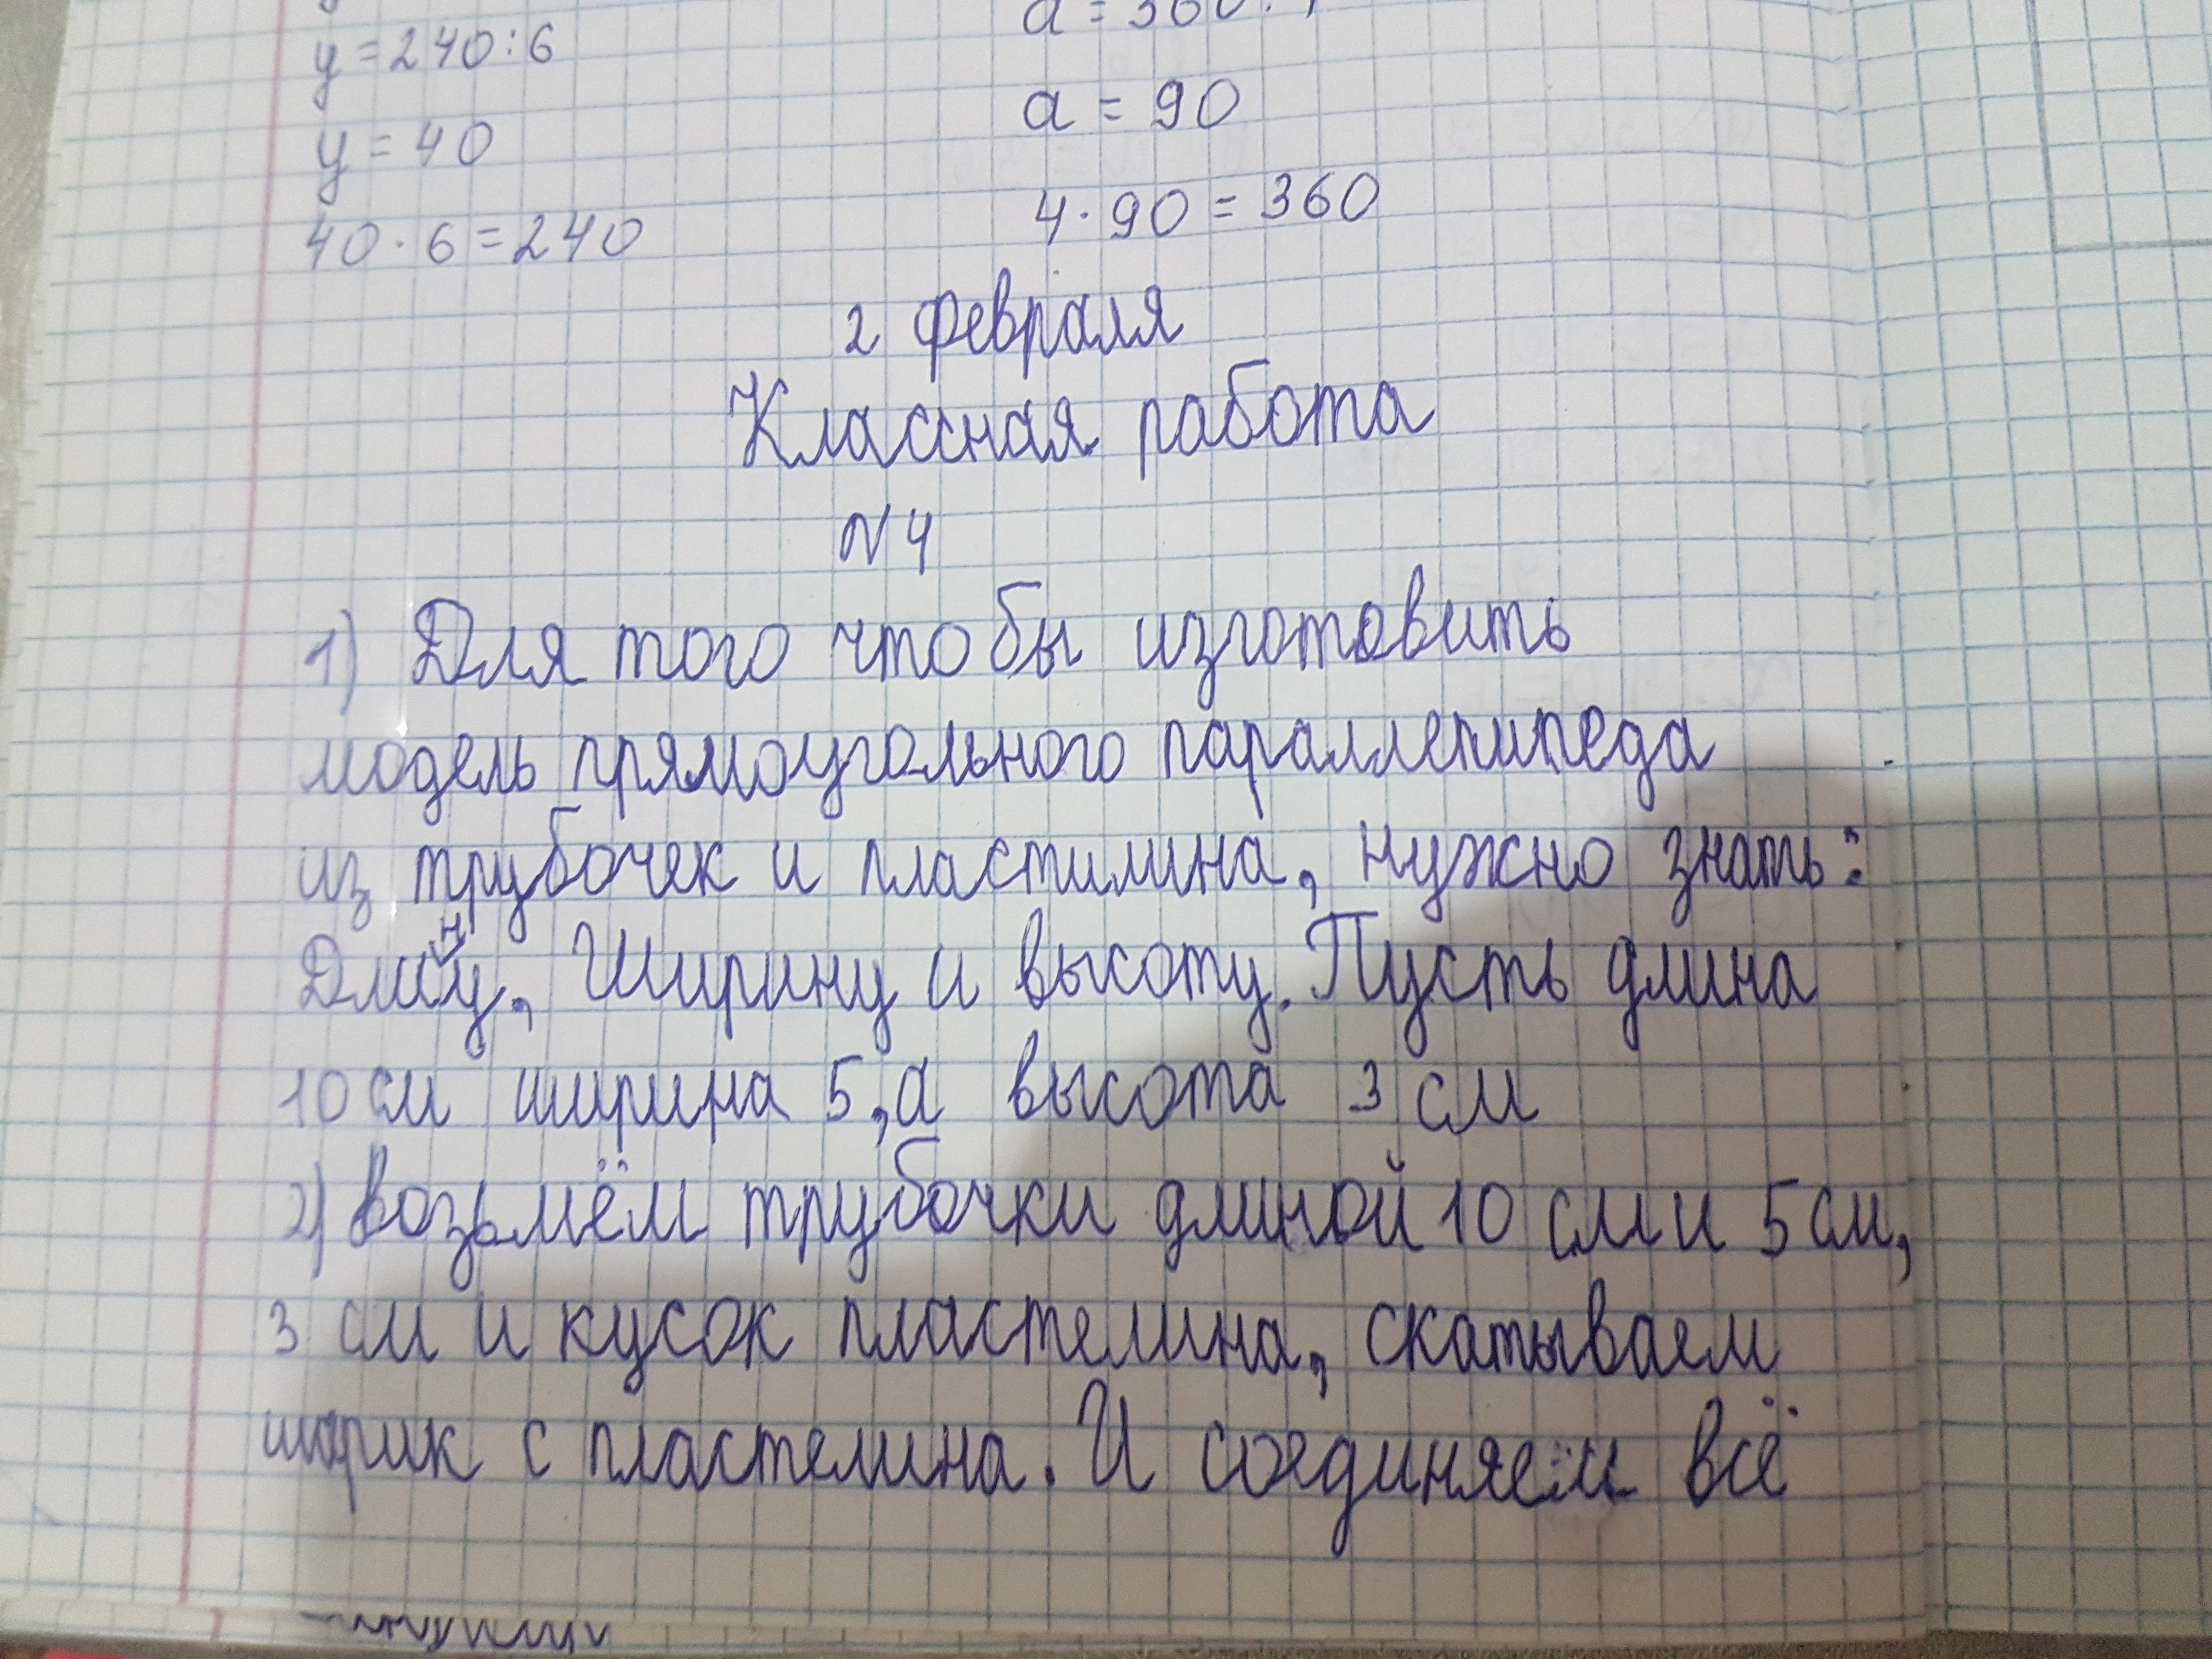 y = 240 : 6
a = 360 :
y = 40
a = 90
40 · 6 = 240
4 · 90 = 360
2 февраля
Классная работа
N 4
1) Для того чтобы изготовить
модель прямоугольного параллепипеда
из трубочек и пластилина, нужно знать:
Длину, Ширину и высоту. Пусть длина
10 см ширина 5, а высота 3 см
2) возьмём трубочки длиной 10 см и 5 см,
3 см и кусок пластелина, скатываем
шарик с пластелина. И соединяем всё